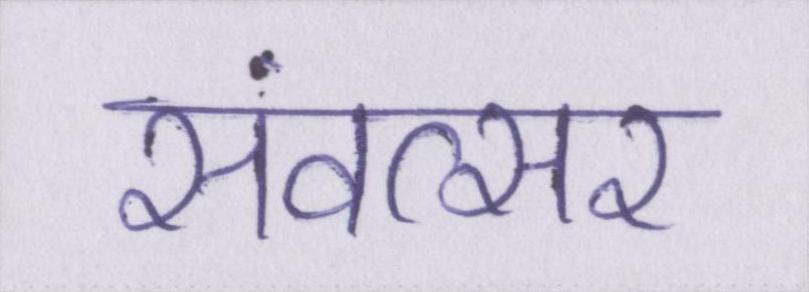 संवत्सर